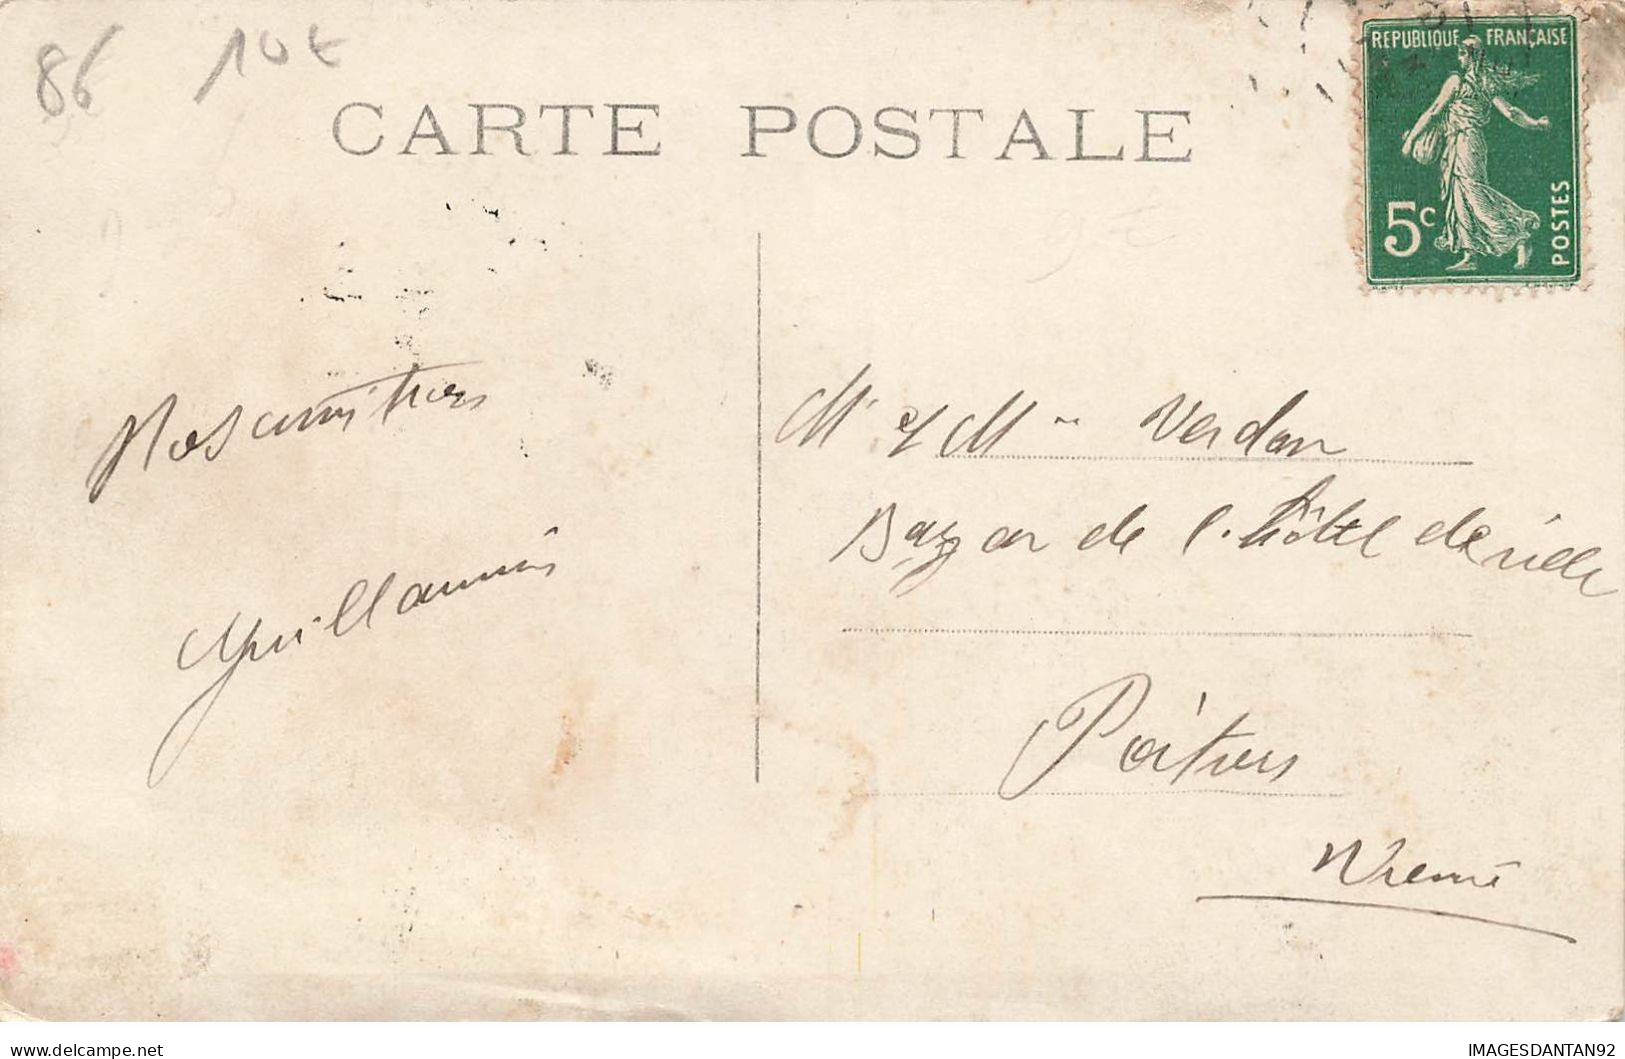 86 10€
CARTE POSTALE
REPUBLIQUE FRANÇAISE
5c
POSTES
Nos amitiés
Mr et Mme Verdon
Bazar de l'hôtel de ville
Poitiers
Vienne
IMAGESDANTAN92
delcampe.net